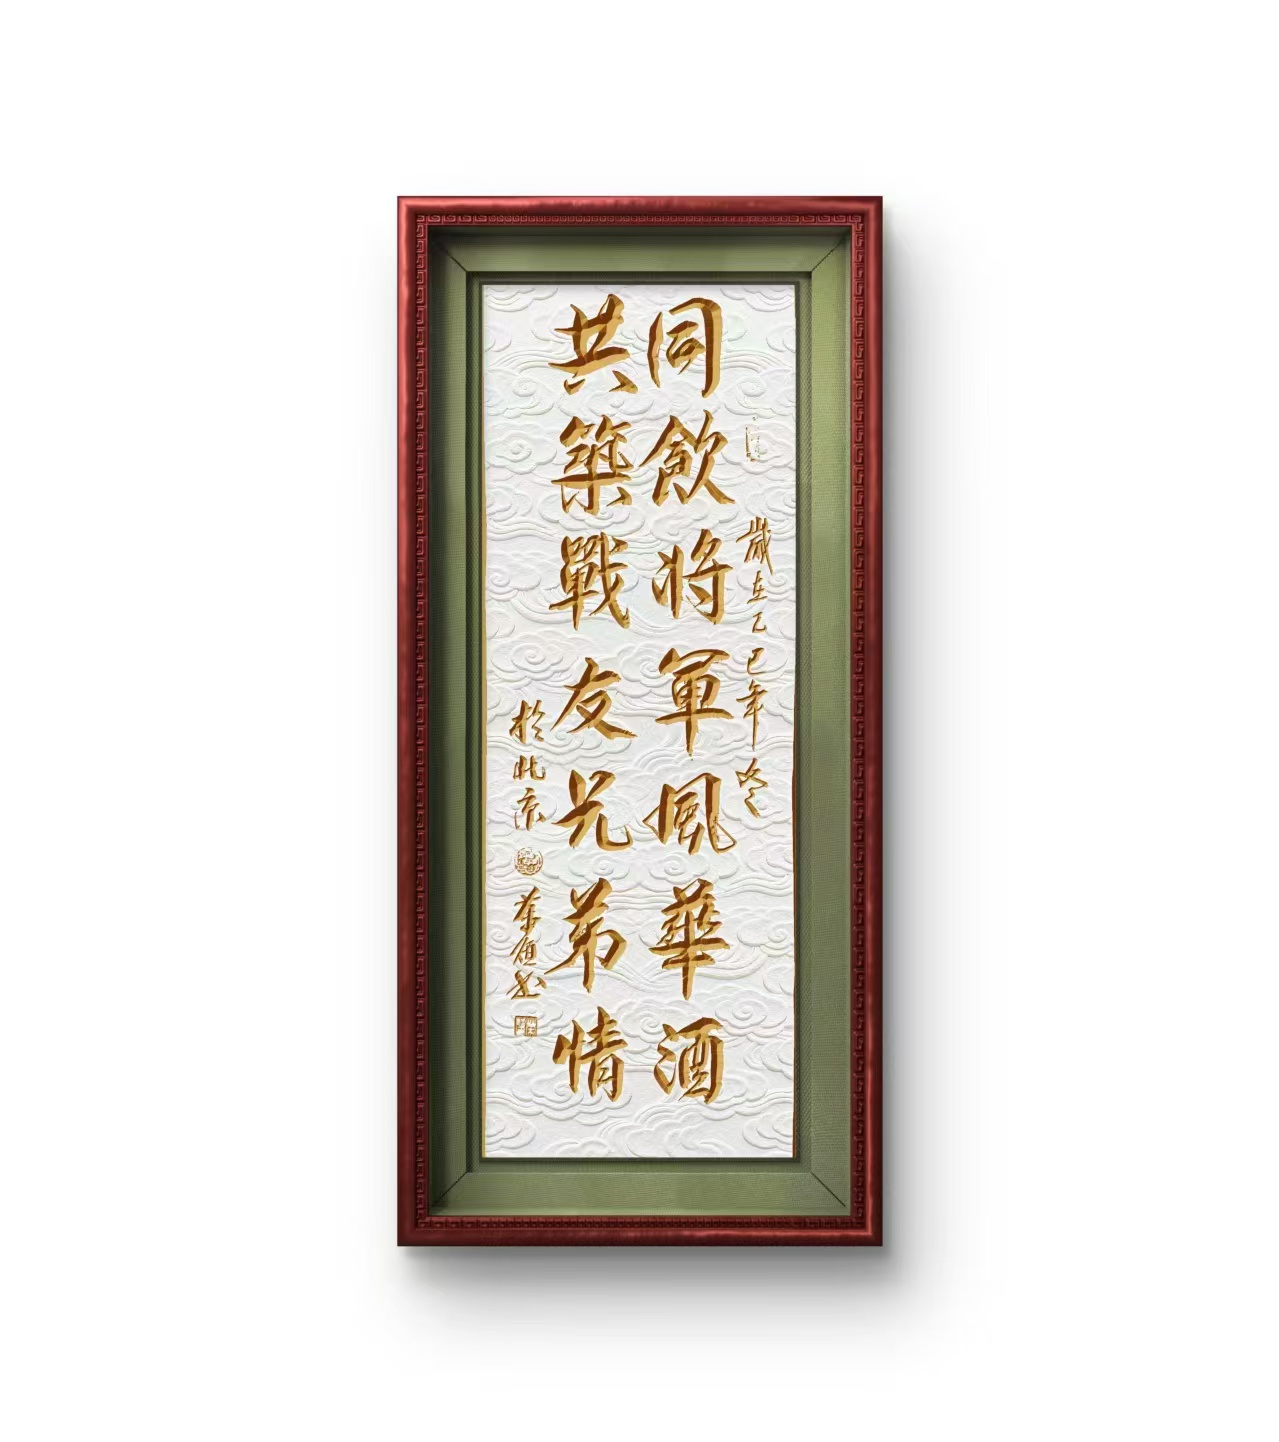 歲在乙巳年冬
同飲将軍風華酒
共築戰友兄弟情
於北京